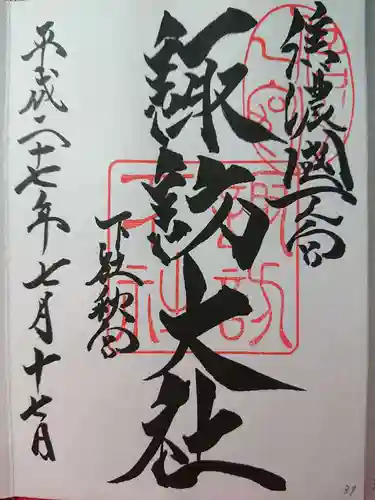 信濃國一之宮
諏訪大社
下社秋宮
平成二十七年七月十七日
31